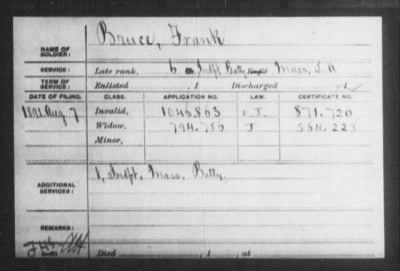 NAME OF SOLDIER: Bruce, Frank
SERVICE: Late rank, 6 Indpt Batty Mass. L A
TERM OF SERVICE: Enlisted , 1 Discharged , 1
DATE OF FILING. CLASS. APPLICATION NO. LAW. CERTIFICATE NO.
1891 Aug 7 Invalid, 1045863 871.720
Widow, 794.786 564.228
Minor,
ADDITIONAL SERVICES: 1, Indpt. Mass. Batty.
REMARKS:
Died , 1 , at